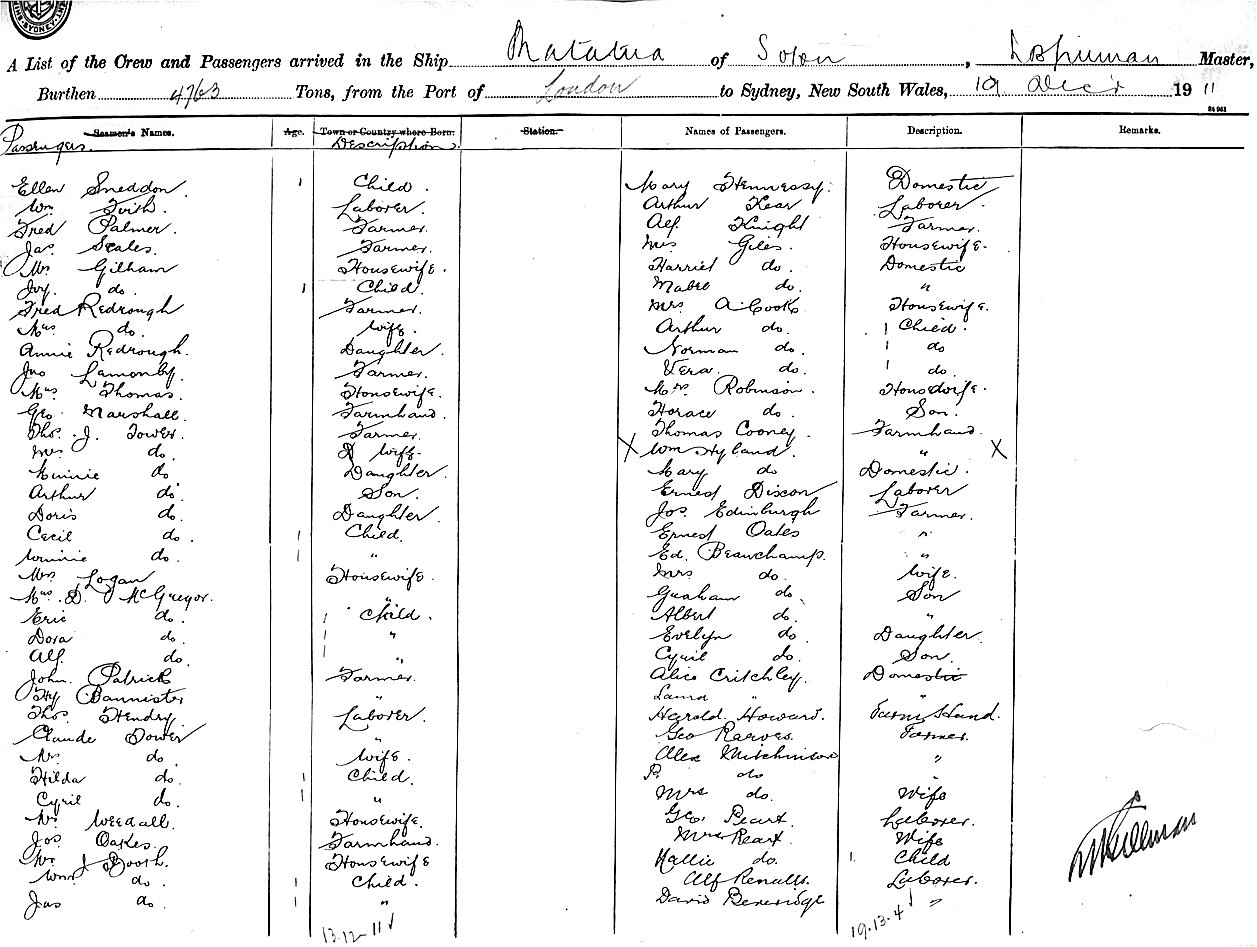 SYDNEY
A List of the Crew and Passengers arrived in the Ship Matatua of Soton, Master,
Burthen 4763 Tons, from the Port of London to Sydney, New South Wales, 19 Decr 1911
84951
Seamen's Names. Age. Town or Country where Born. Station. Names of Passengers. Description. Remarks.
Passengers. Description
Ellen Sneddon. 1 Child.
Wm Frith. Laborer.
Fred Palmer. Farmer.
Jas. Scales. Farmer.
Mrs Gilham Housewife.
Ivy do. 1 Child.
Fred Redrough Farmer.
Mrs do. Wife.
Annie Redrough. Daughter.
Jno Lamonby. Farmer.
Mrs Thomas. Housewife.
Geo. Marshall. Farmhand.
Thos. J. Tower. Farmer.
Mrs do. Wife.
Minnie do Daughter.
Arthur do. Son.
Doris do. Daughter.
Cecil do. 1 Child.
Winnie do. 1 "
Mrs Logan Housewife.
Mrs D. McGregor. "
Eric do. 1 Child.
Dora do. 1 "
Alf. do. 1 "
John. Patrick Farmer.
Hy Bannister "
Thos. Hendry. Laborer.
Claude Tower "
Mrs do. Wife.
Hilda do. 1 Child.
Cyril do. 1 "
Mrs Weedall. Housewife.
Jos Oakes. Farmhand.
Mrs J Booth. Housewife
Wm do. 1 Child.
Jas do. 1 "
13-12-11
Mary Hennessy. Domestic
Arthur Kear Laborer.
Alf. Knight Farmer.
Mrs Giles. Housewife.
Harriet do. Domestic
Mabel do. "
Mrs A. Cook Housewife.
Arthur do. 1 Child.
Norman do. 1 do
Vera. do. 1 do.
Mrs. Robinson. Housewife.
Horace do. Son.
Thomas Cooney. Farmhand.
X Wm Hyland. " X
Mary do Domestic.
Ernest Dixon Laborer
Jos. Edinburgh Farmer.
Ernest Oates "
Ed. Beauchamp. "
Mrs do. Wife.
Graham do. Son
Albert do. "
Evelyn do. Daughter.
Cyril do. Son.
Alice Critchley. Domestic
Laura " "
Harold Howard. Farm Hand.
Geo Reeves. Farmer.
Alex Mitchinson "
P. do "
Mrs do. Wife
Geo. Peart. Laborer.
Mrs Peart. Wife
Hallie do. 1. Child
Alf Renalls. Laborer.
David Beveridge "
19.13.4